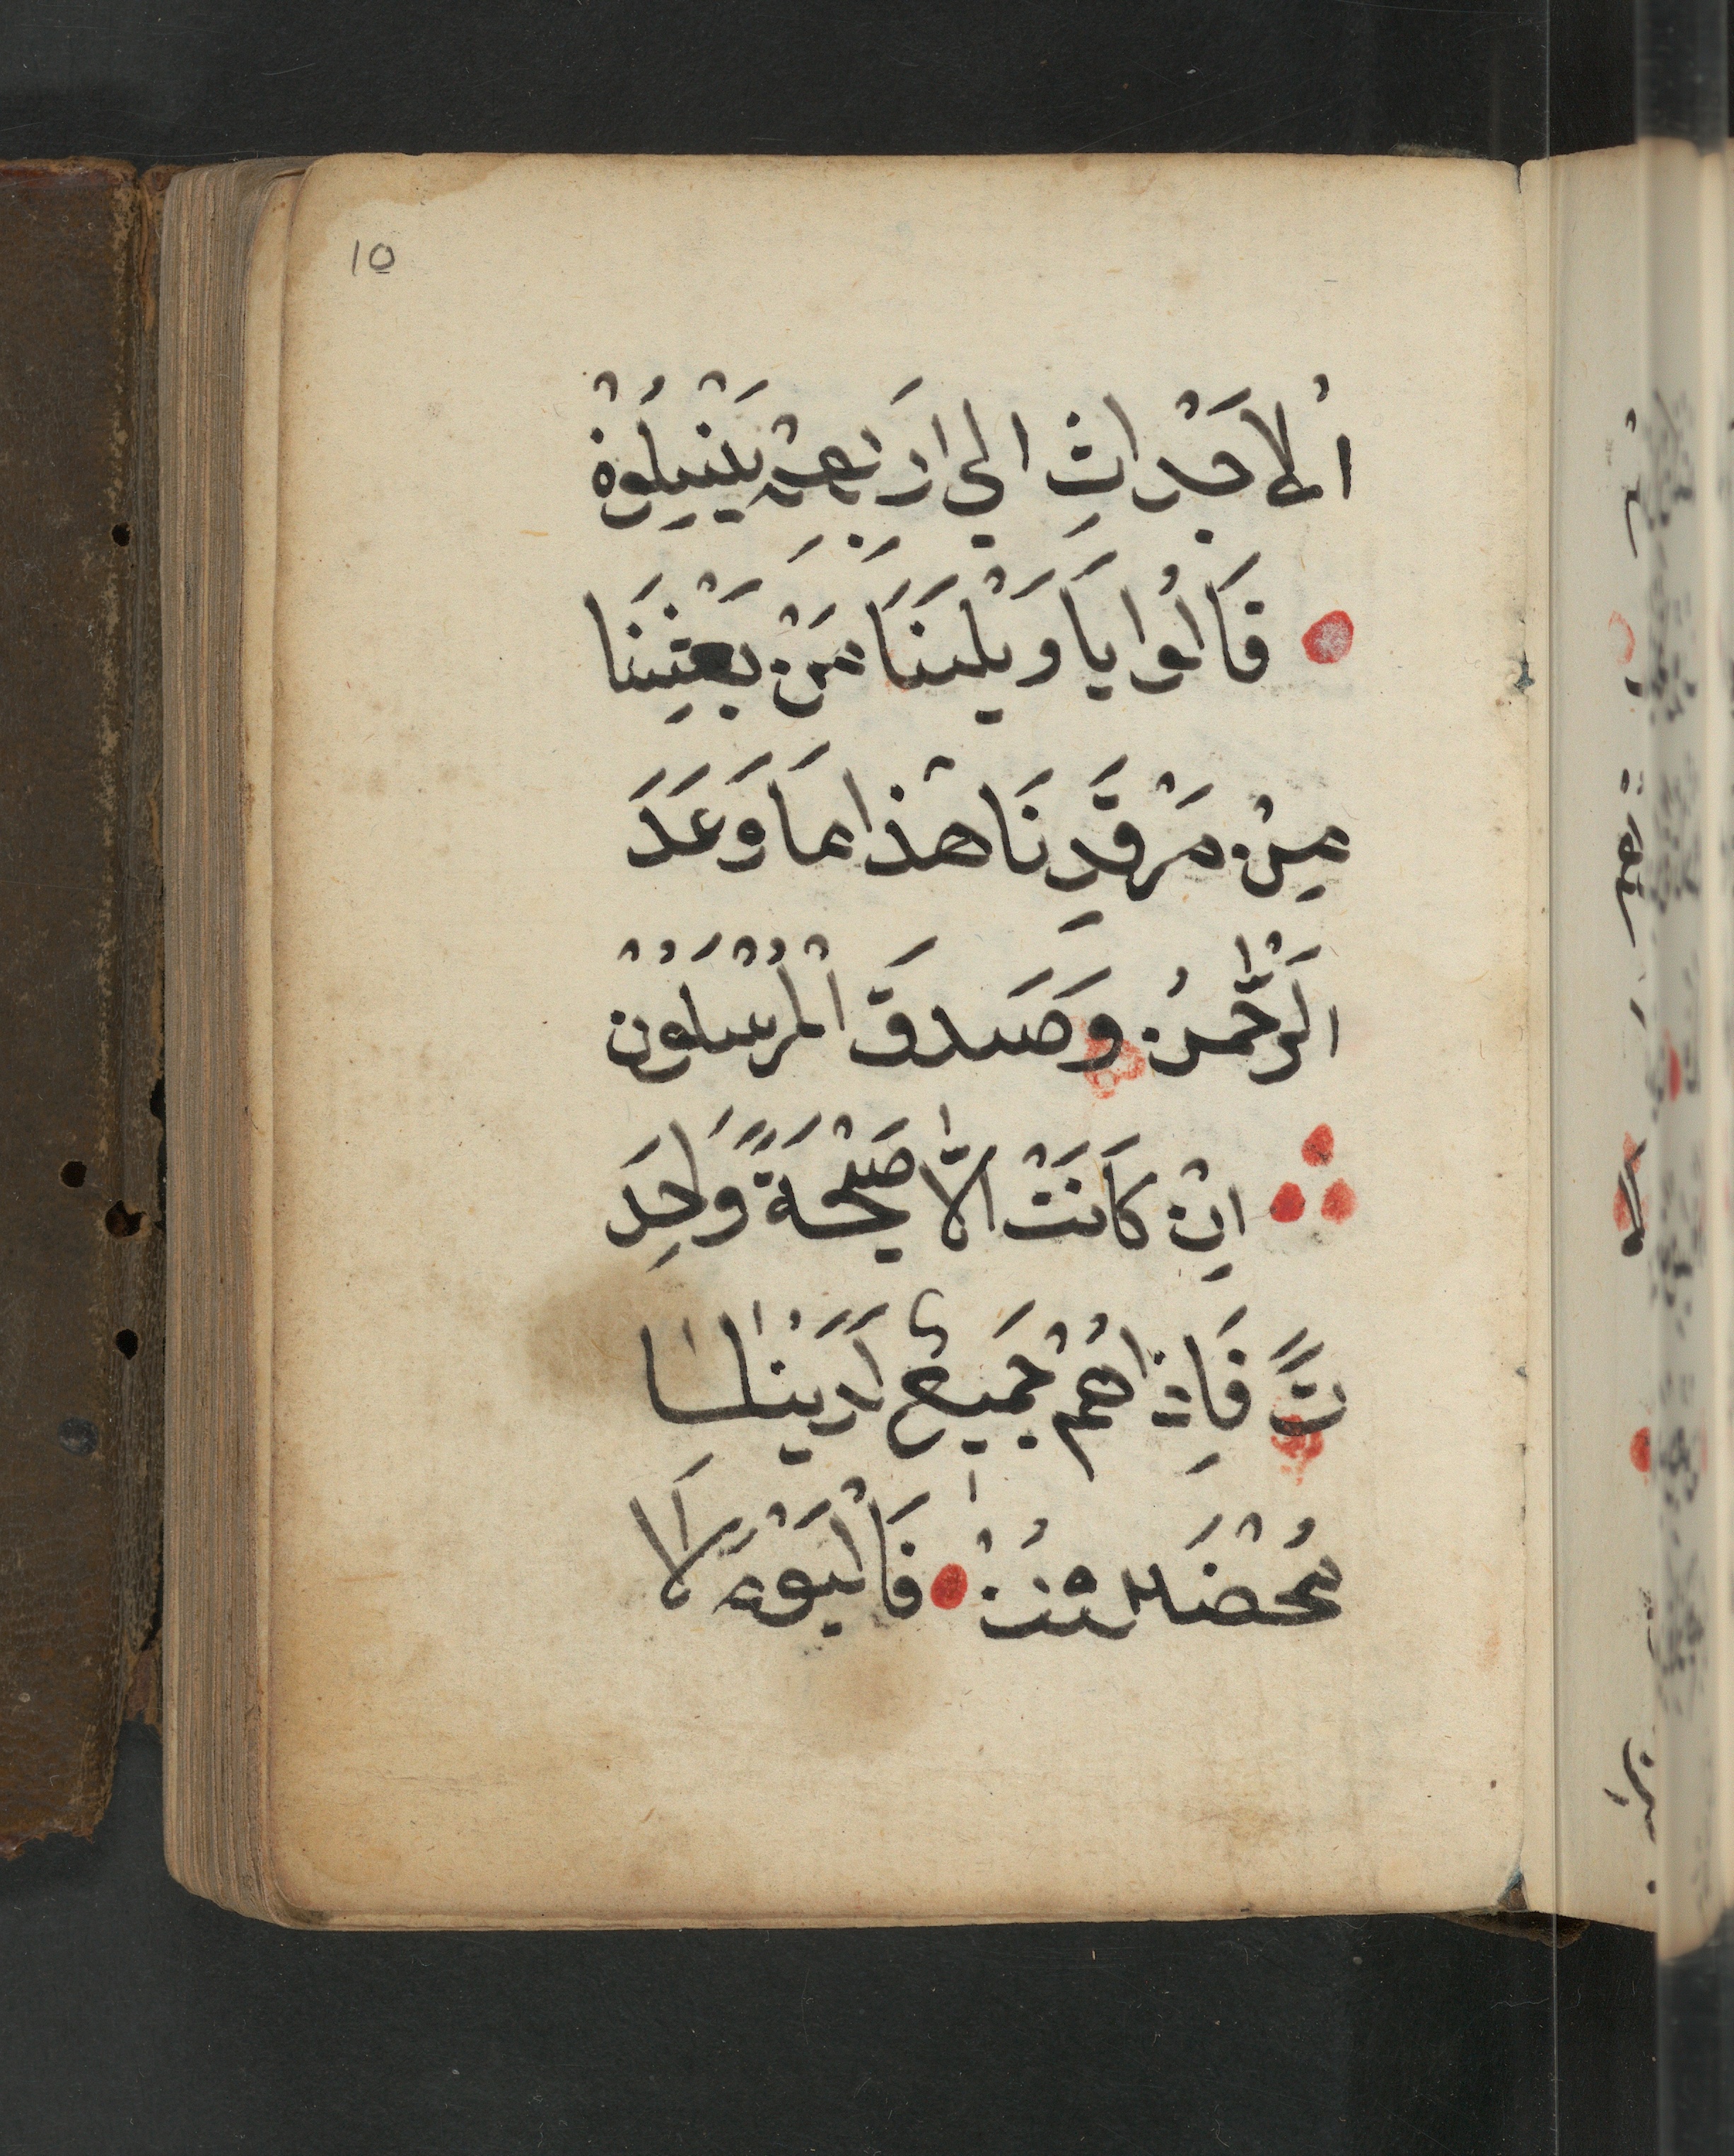 10
اْلاَجْدَاثِ الي ارَبِهِمْ يَنْسِلُوْنْ
قَالُوا يَا وَيْلَنَا مَنْ بَعْثِنَا
مِنْ مَرْقَدِنَا هْذا مَا وَعَدَ
الرَّحْمنُ وَصَدَقَ اْلمُرْسَلُوْنْ
اِنْ كَانَتْ الاَّ صَيْحَةً وَاحِدَ
تً فَاِذاهُمْ جَمَيعٌ لَدَيْنالسا
مُحْضَرُوْنْ فَالْيَوْمَ لَا